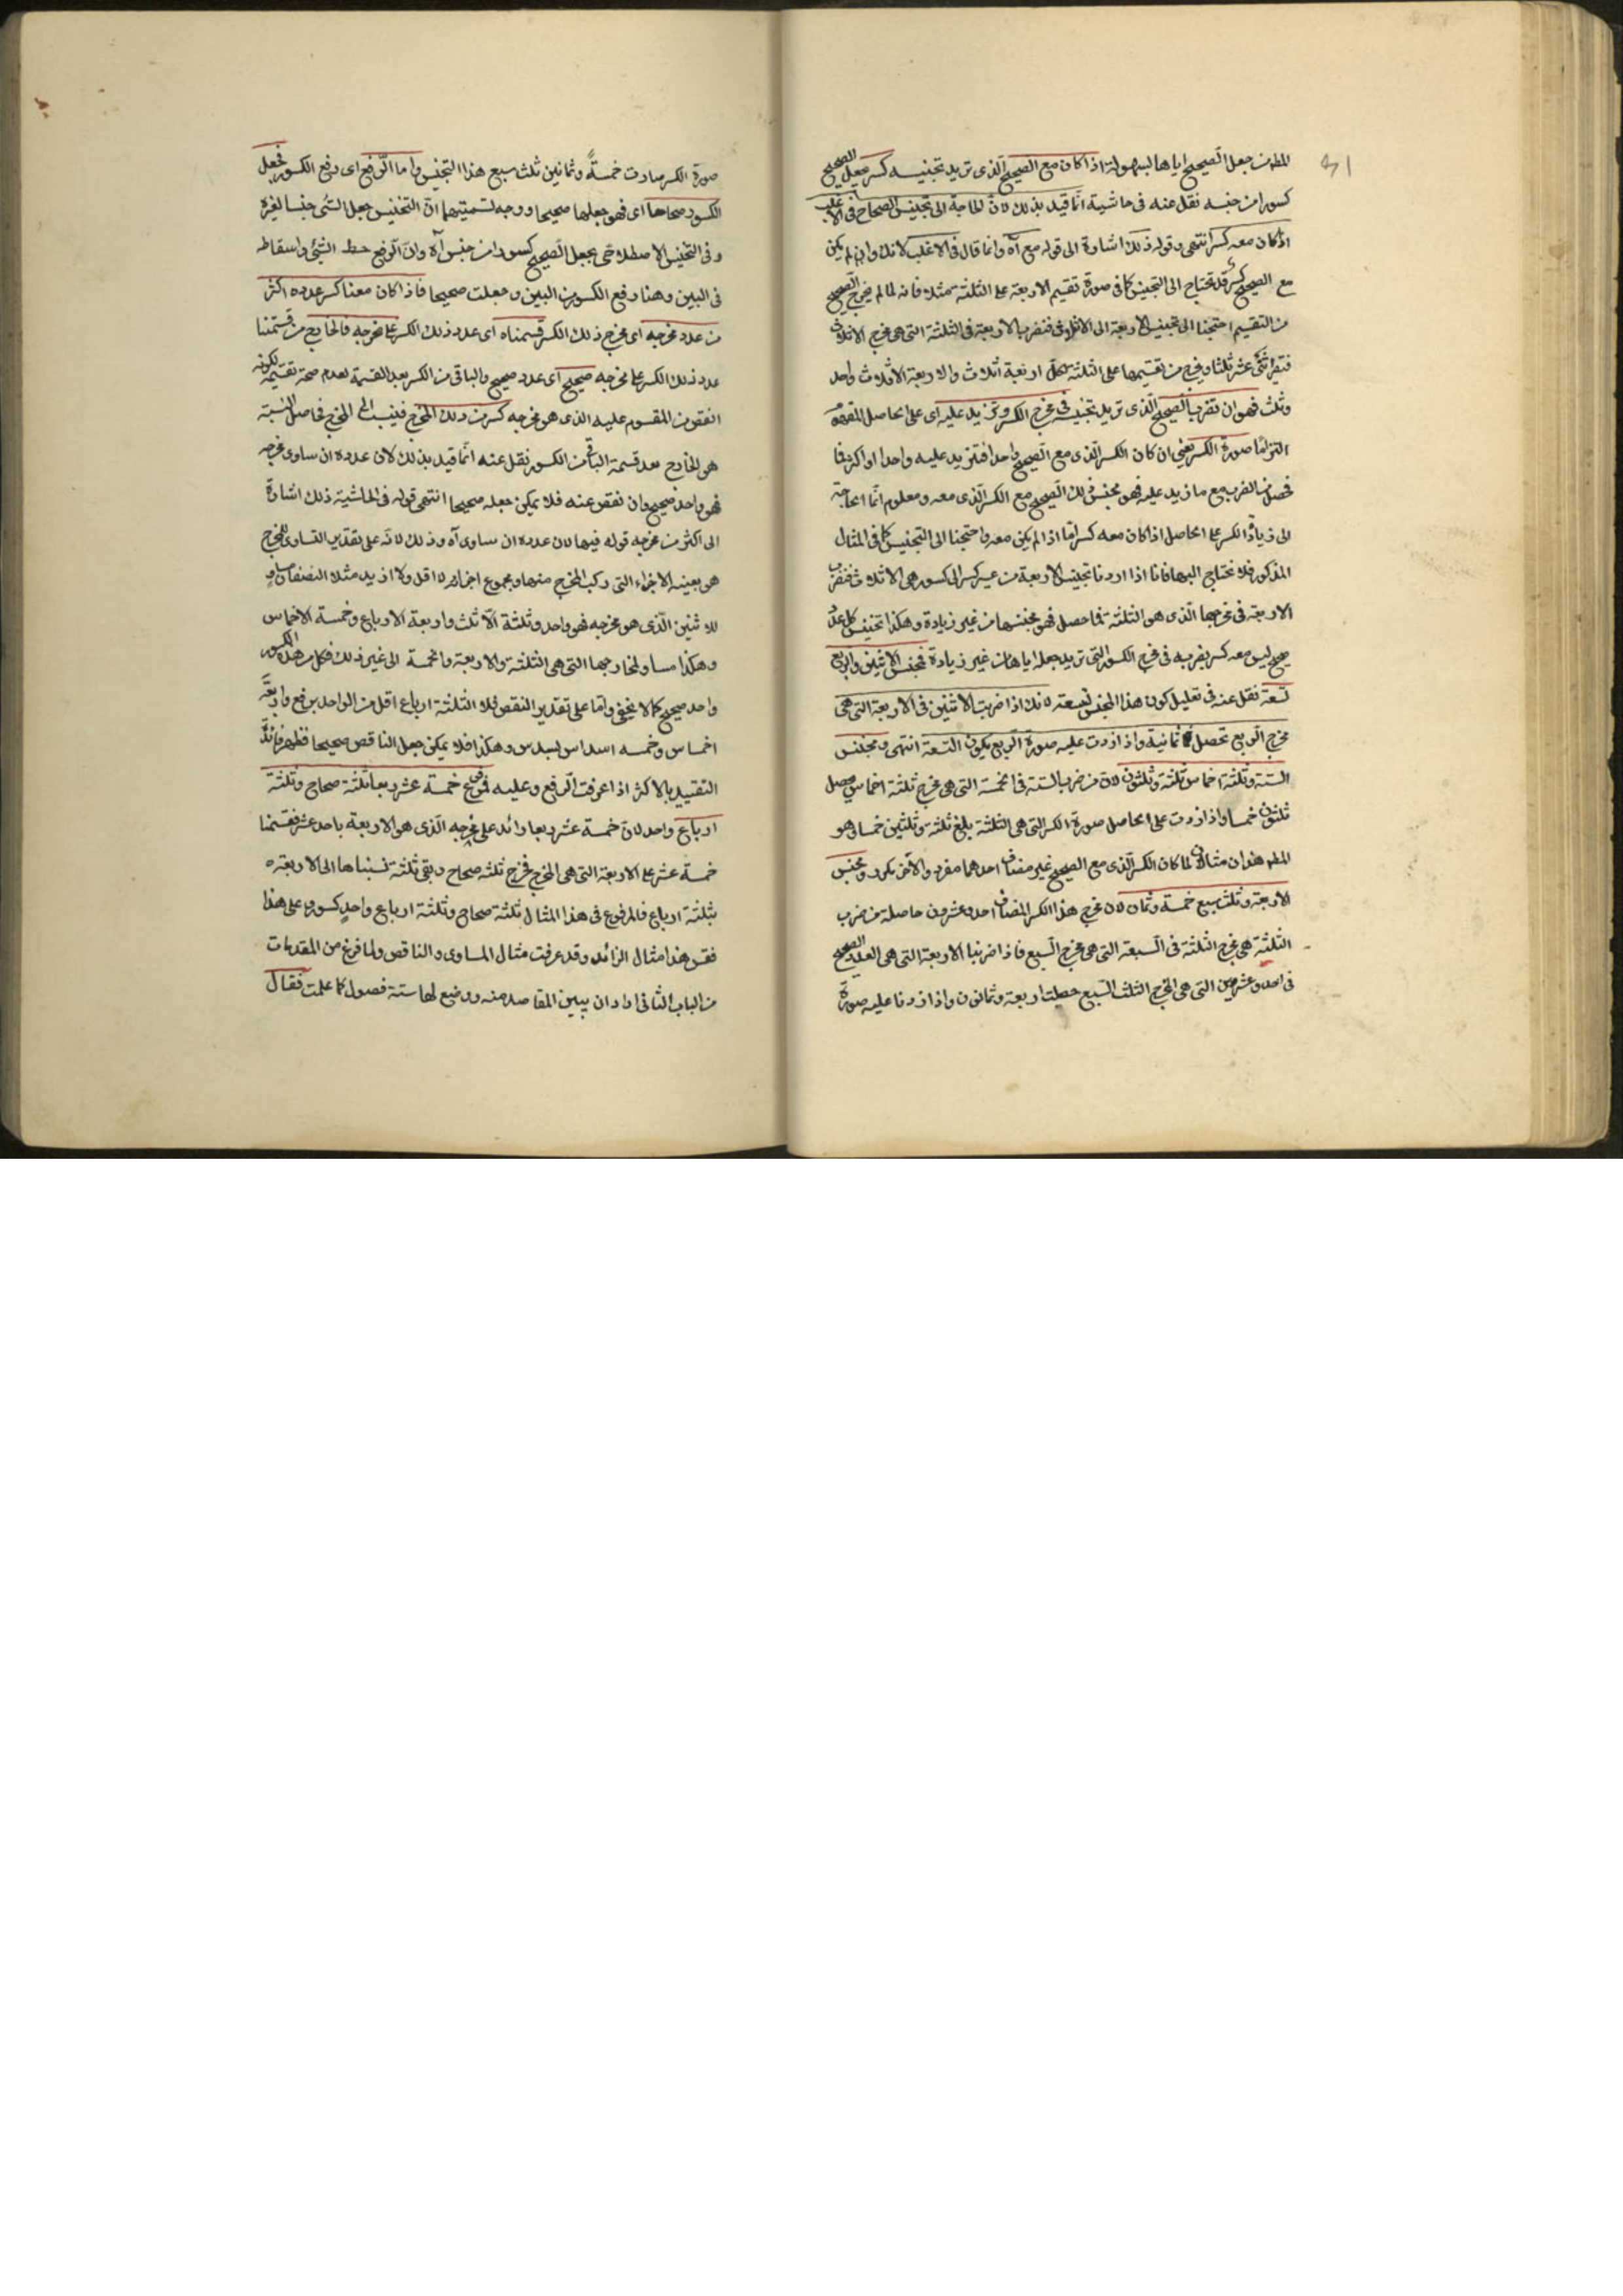 المطمن جعل الصحيح اياها لسهولته اذا كان مع الصحيح الذى تريد تجنيسه كسر جعل الصحيح
كسورا من جنسه نقل عنه فى حاشية انما قيد بذلك لان الحاجة الى تجنيس الصحاح فى الاغلب
اذا كان معه كسر انتهى وقوله ذلك اشارة الى قوله مع آه وانما قال فى الاغلب لانك وان لم يكن
مع الصحيح كسر قد تحتاج الى التجنيس كما فى صورة تقسيم الاربعة على الثلثة مثلا فانه لما لم يخرج الصحيح
من التقسيم احتجنا الى تجنيس الاربعة الى الاثلاث فنضرب الاربعة فى الثلثة التى هى مخرج الاثلاث
اثنى عشر ثلثا ويخرج من تقسيمها على الثلثة اربعة اثلاث والاربعة الاثلاث واحد
وثلث فهو ان تضرب الصحيح الذى تريد تجنيسه فى مخرج الكسر وتزيد عليه اى على الحاصل
صورة الكسر يعنى ان كان الكسر الذى مع الصحيح واحدا فتزيد عليه واحدا او اكثر فما
حصل من الضرب مع ما زيد عليه فهو مجنس ذلك الصحيح مع الكسر الذى معه ومعلوم انما الحاجة
الى زيادة الكسر على الحاصل اذا كان معه كسر اما اذا لم يكن معه واحتجنا الى التجنيس كما فى المثال
المذكور فلا نحتاج اليها فانا اذا اردنا تجنيس الاربعة من غير كسر الى كسور هى الاثلاث فنضرب
الاربعة فى مخرجها الذى هو الثلثة فما حصل فهو مجنسها من غير زيادة وهكذا تجنيس كل عدد
صحيح ليس معه كسر يضرب فى مخرج الكسور التى تريد جعله اياها من غير زيادة فمجنس الاثنين والربع
تسعة نقل عنه فى تعليل كون هذا المجنس تسعة لانك اذا ضربت الاثنين فى الاربعة التى هى
مخرج الربع تحصل ثمانية واذا زدت عليه صورة الربع يكون التسعة انتهى ومجنس
الستة وثلثة اخماس ثلثة وثلثون لان من ضرب الستة فى الخمسة التى هى مخرج ثلثة اخماس حصل
ثلثون خمسا واذا زدت على الحاصل صورة الكسر التى هى الثلثة بلغ ثلثة وثلثين خمسا وهو
المطم هذان مثالان لما كان الكسر الذى مع الصحيح غير مضاف احدهما مفرد والآخر مكرر ومجنس
الاربعة وثلث سبع خمسة وثمانون لان مخرج هذا الكسر المضاف احد وعشرون حاصلة من ضرب
الثلثة هى مخرج الثلثة فى السبعة التى هى مخرج السبع فاذا ضربنا الاربعة التى هى العدد الصحيح
فى احد وعشرين التى هى مخرج الثلث السبع حصلت اربعة وثمانون واذا زدنا عليه صورة
صورة الكسر صارت خمسة وثمانين ثلث سبع هذا التجنيس واما الرفع اى رفع الكسور فجعل
الكسور صحاحا اى فهو جعلها صحيحا ووجه تسميتهما ان التجنيس جعل الشئ جنسا لغيره
وفى التجنيس الاصطلاحى يجعل الصحيح كسورا من جنس آه وان الرفع حط الشئ واسقاطه
فى البين وهنا رفع الكسور من البين وجعلت صحيحا فاذا كان معنا كسر عدده اكثر
من عدد مخرجه اى مخرج ذلك الكسر قسمناه اى عدد ذلك الكسر على مخرجه فالخارج من قسمتنا
عدد ذلك الكسر على مخرجه صحيح اى عدد صحيح والباقى من الكسر بعد القسمة لعدم صحة تقسيمه لكونه
انقص من المقسوم عليه الذى هو مخرجه كسر من ذلك المخرج فينسب الى المخرج فحاصل النسبة
هو الخارج بعد قسمة الباقى من الكسور نقل عنه انما قيد بذلك لان عدده ان ساوى مخرجه
فهو واحد صحيح وان نقص عنه فلا يمكن جعله صحيحا انتهى قوله فى الحاشية ذلك اشارة
الى اكثر من مخرجه قوله فيها لان عدده ان ساوى آه وذلك لانه على تقدير التساوى المخرج
هو بعينه الاجزاء التى ركب المخرج منها ومجموع اجزائه لا اقل ولا ازيد مثلا النصفان مساو
للاثنين الذى هو مخرجه فهو واحد وثلثة الاثلث واربعة الارباع وخمسة الاخماس
وهكذا مساو لمخارجها التى هى الثلثة والاربعة والخمسة الى غير ذلك فكل من هذه الكسور
واحد صحيح كما لا يخفى واما على تقدير النقص فلا الثلثة ارباع اقل من الواحد بربع واربعة
اخماس وخمسه اسداس بسدس وهكذا فلا يمكن جعل الناقص صحيحا فظهر فائدة
التقييد بالاكثر اذا عرفت الرفع وعليه فمرفوع خمسة عشر ربعا ثلثة صحاح وثلثة
ارباع واحد لان خمسة عشر ربعا زائد على مخرجه الذى هو الاربعة باحد عشر فقسمنا
خمسة عشر على الاربعة التى هى المخرج فخرج ثلثه صحاح وبقى ثلثة نسبناها الى الاربعة
بثلثة ارباع فالمرفوع فى هذا المثال ثلثة صحاح وثلثة ارباع واحد كسور وعلى هذا
فقس هذا مثال الزائد وقد عرفت مثال المساوى والناقص ولما فرغ من المقدمات
من الباب الثانى اراد ان يبين المقاصد منه ووضع لها ستة فصول كما علمت فقال